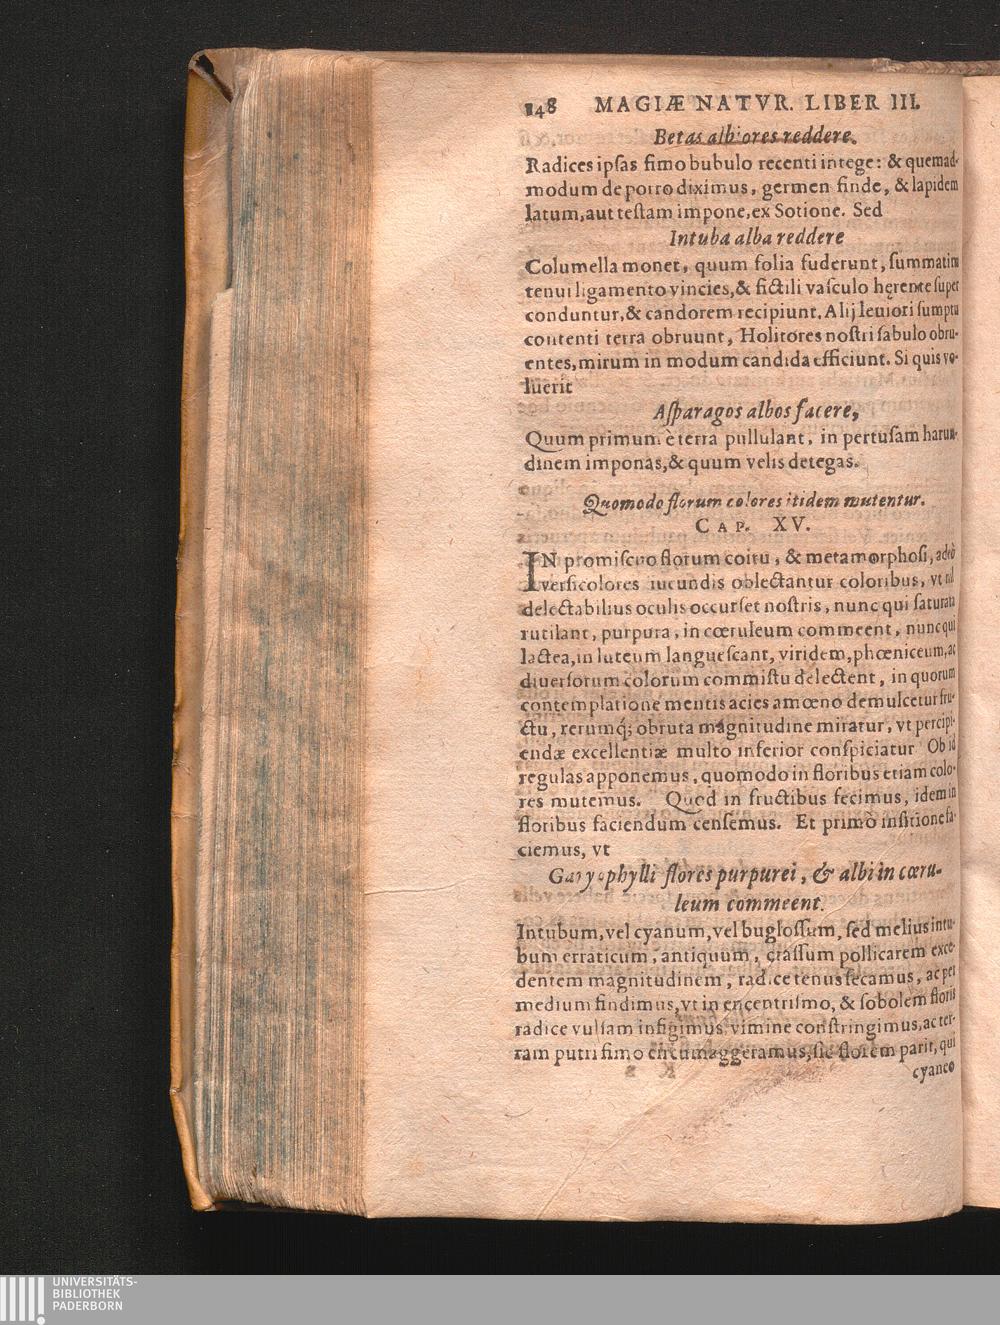 148 MAGIÆ NATVR. LIBER III.
Betas albiores reddere.
Radices ipſas fimo bubulo recenti intege: & quemad-
modum de porro diximus, germen finde, & lapidem
latum, aut teſtam impone, ex Sotione. Sed
Intuba alba reddere
Columella monet, quum folia fuderunt, ſummatim
tenui ligamento vincies, & fictili vaſculo hęrente ſuper
conduntur, & candorem recipiunt. Alij leuiori ſumptu
contenti terra obruunt, Holitores noſtri ſabulo obru-
entes, mirum in modum candida efficiunt. Si quis vo-
luerit
Aſparagos albos facere,
Quum primum è terra pullulant, in pertuſam harun-
dinem imponas, & quum velis detegas.
Quomodo florum colores itidem mutentur.
CAP. XV.
IN promiſcuo florum coitu, & metamorphoſi, adeò
verſicolores iucundis oblectantur coloribus, vt nil
delectabilius oculis occurſet noſtris, nunc qui ſaturata
rutilant, purpura, in cœruleum commeent, nunc qui
lactea, in luteum langueſcant, viridem, phœniceum, ac
diuerſorum colorum commiſtu delectent, in quorum
contemplatione mentis acies amœno demulcetur fru-
ctu, rerumq́; obruta magnitudine miratur, vt percipi-
endæ excellentiæ multo inferior conſpiciatur Ob id
regulas apponemus, quomodo in floribus etiam colo-
res mutemus. Quod in fructibus fecimus, idem in
floribus faciendum cenſemus. Et primò inſitione fa-
ciemus, vt
Garyophylli flores purpurei, & albi in cœru-
leum commeent.
Intubum, vel cyanum, vel bugloſſum, ſed melius intu-
bum erraticum, antiquum, craſſum pollicarem exce-
dentem magnitudinem, radice tenus ſecamus, ac per
medium findimus, vt in encentriſmo, & ſobolem floris
radice vulſam infigimus, vimine conſtringimus, ac ter-
ram putri fimo circumaggeramus, ſic florem parit, qui
cyaneo
UNIVERSITÄTS-
BIBLIOTHEK
PADERBORN